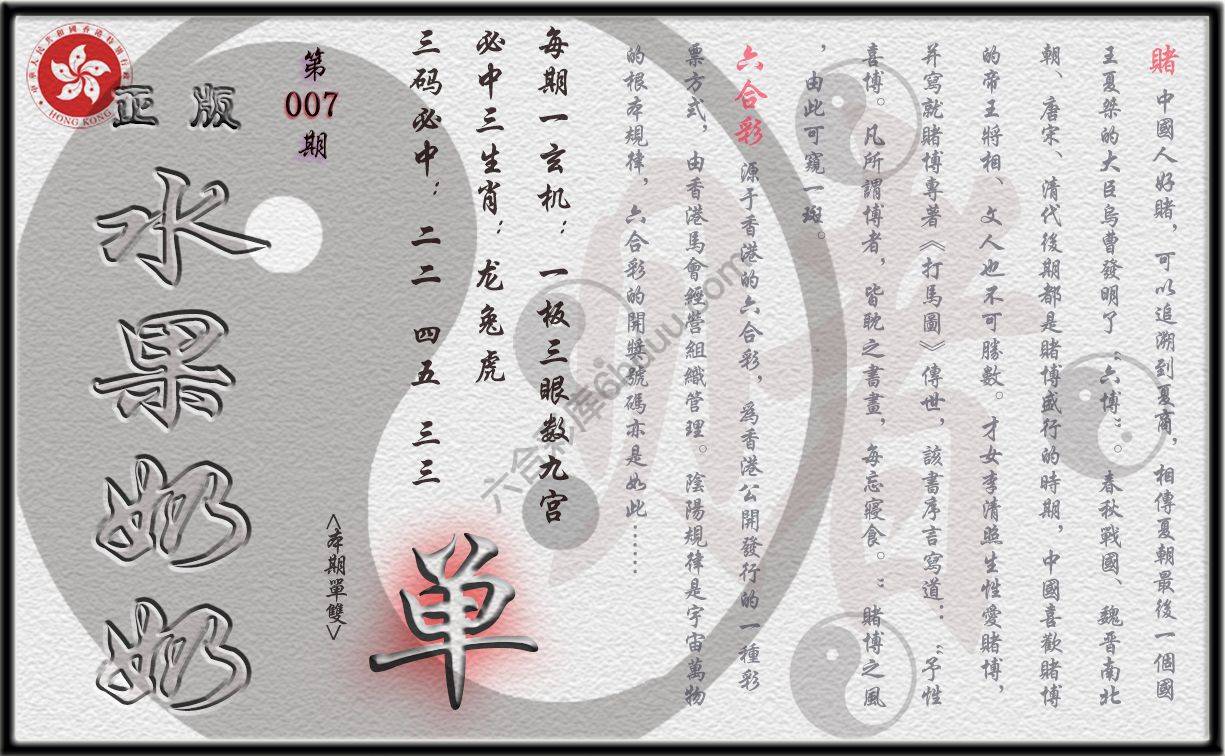 賭 中國人好賭，可以追溯到夏商，相傳夏朝最後一個國
王夏桀的大臣烏曹發明了“六博”。春秋戰國、魏晋南北
朝、唐宋、清代後期都是賭博盛行的時期，中國喜歡賭博
的帝王將相、文人也不可勝數。才女李清照生性愛賭博，
并寫就賭博專著《打馬圖》傳世，該書序言寫道：“予性
喜博。凡所謂博者，皆耽之書畫，每忘寢食。”賭博之風
，由此可窺一斑。
六合彩 源于香港的六合彩，爲香港公開發行的一種彩
票方式，由香港馬會經營組織管理。陰陽規律是宇宙萬物
的根本規律，六合彩的開獎號碼亦是如此……
每期一玄机：一板三眼数九宫
必中三生肖：龙兔虎
三码必中：二二 四五 三三
单
<本期單雙>
第
007
期
正版
水果奶奶
中華人民共和國香港特別行政區
HONG KONG
六合彩库6huuu.com